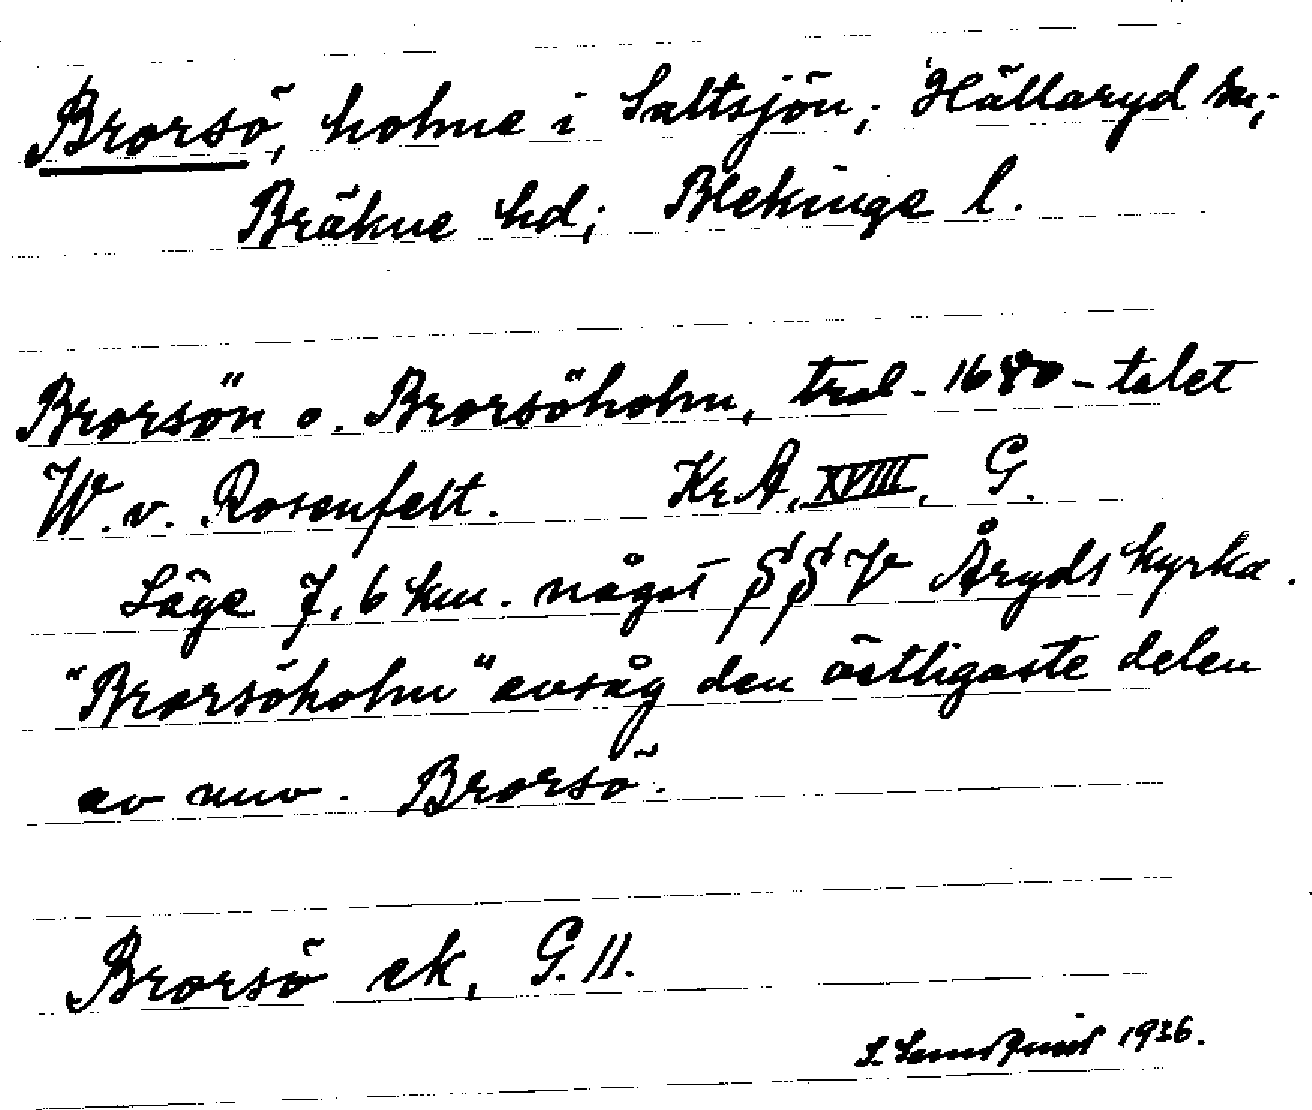 Brorsö, holme i Saltsjön; Hällaryd sn;
Bräkne hd; Blekinge l.
Brorsön o. Brorsöholm, trol. 1680-talet
W. v. Rosenfelt. KrA, XVIII, G.
Läge 7,6 km. något SSV Åryds kyrka.
"Brorsöholm" avsåg den östligaste delen
av nuv. Brorsö.
Brorsö ek, G. 11.
1936.